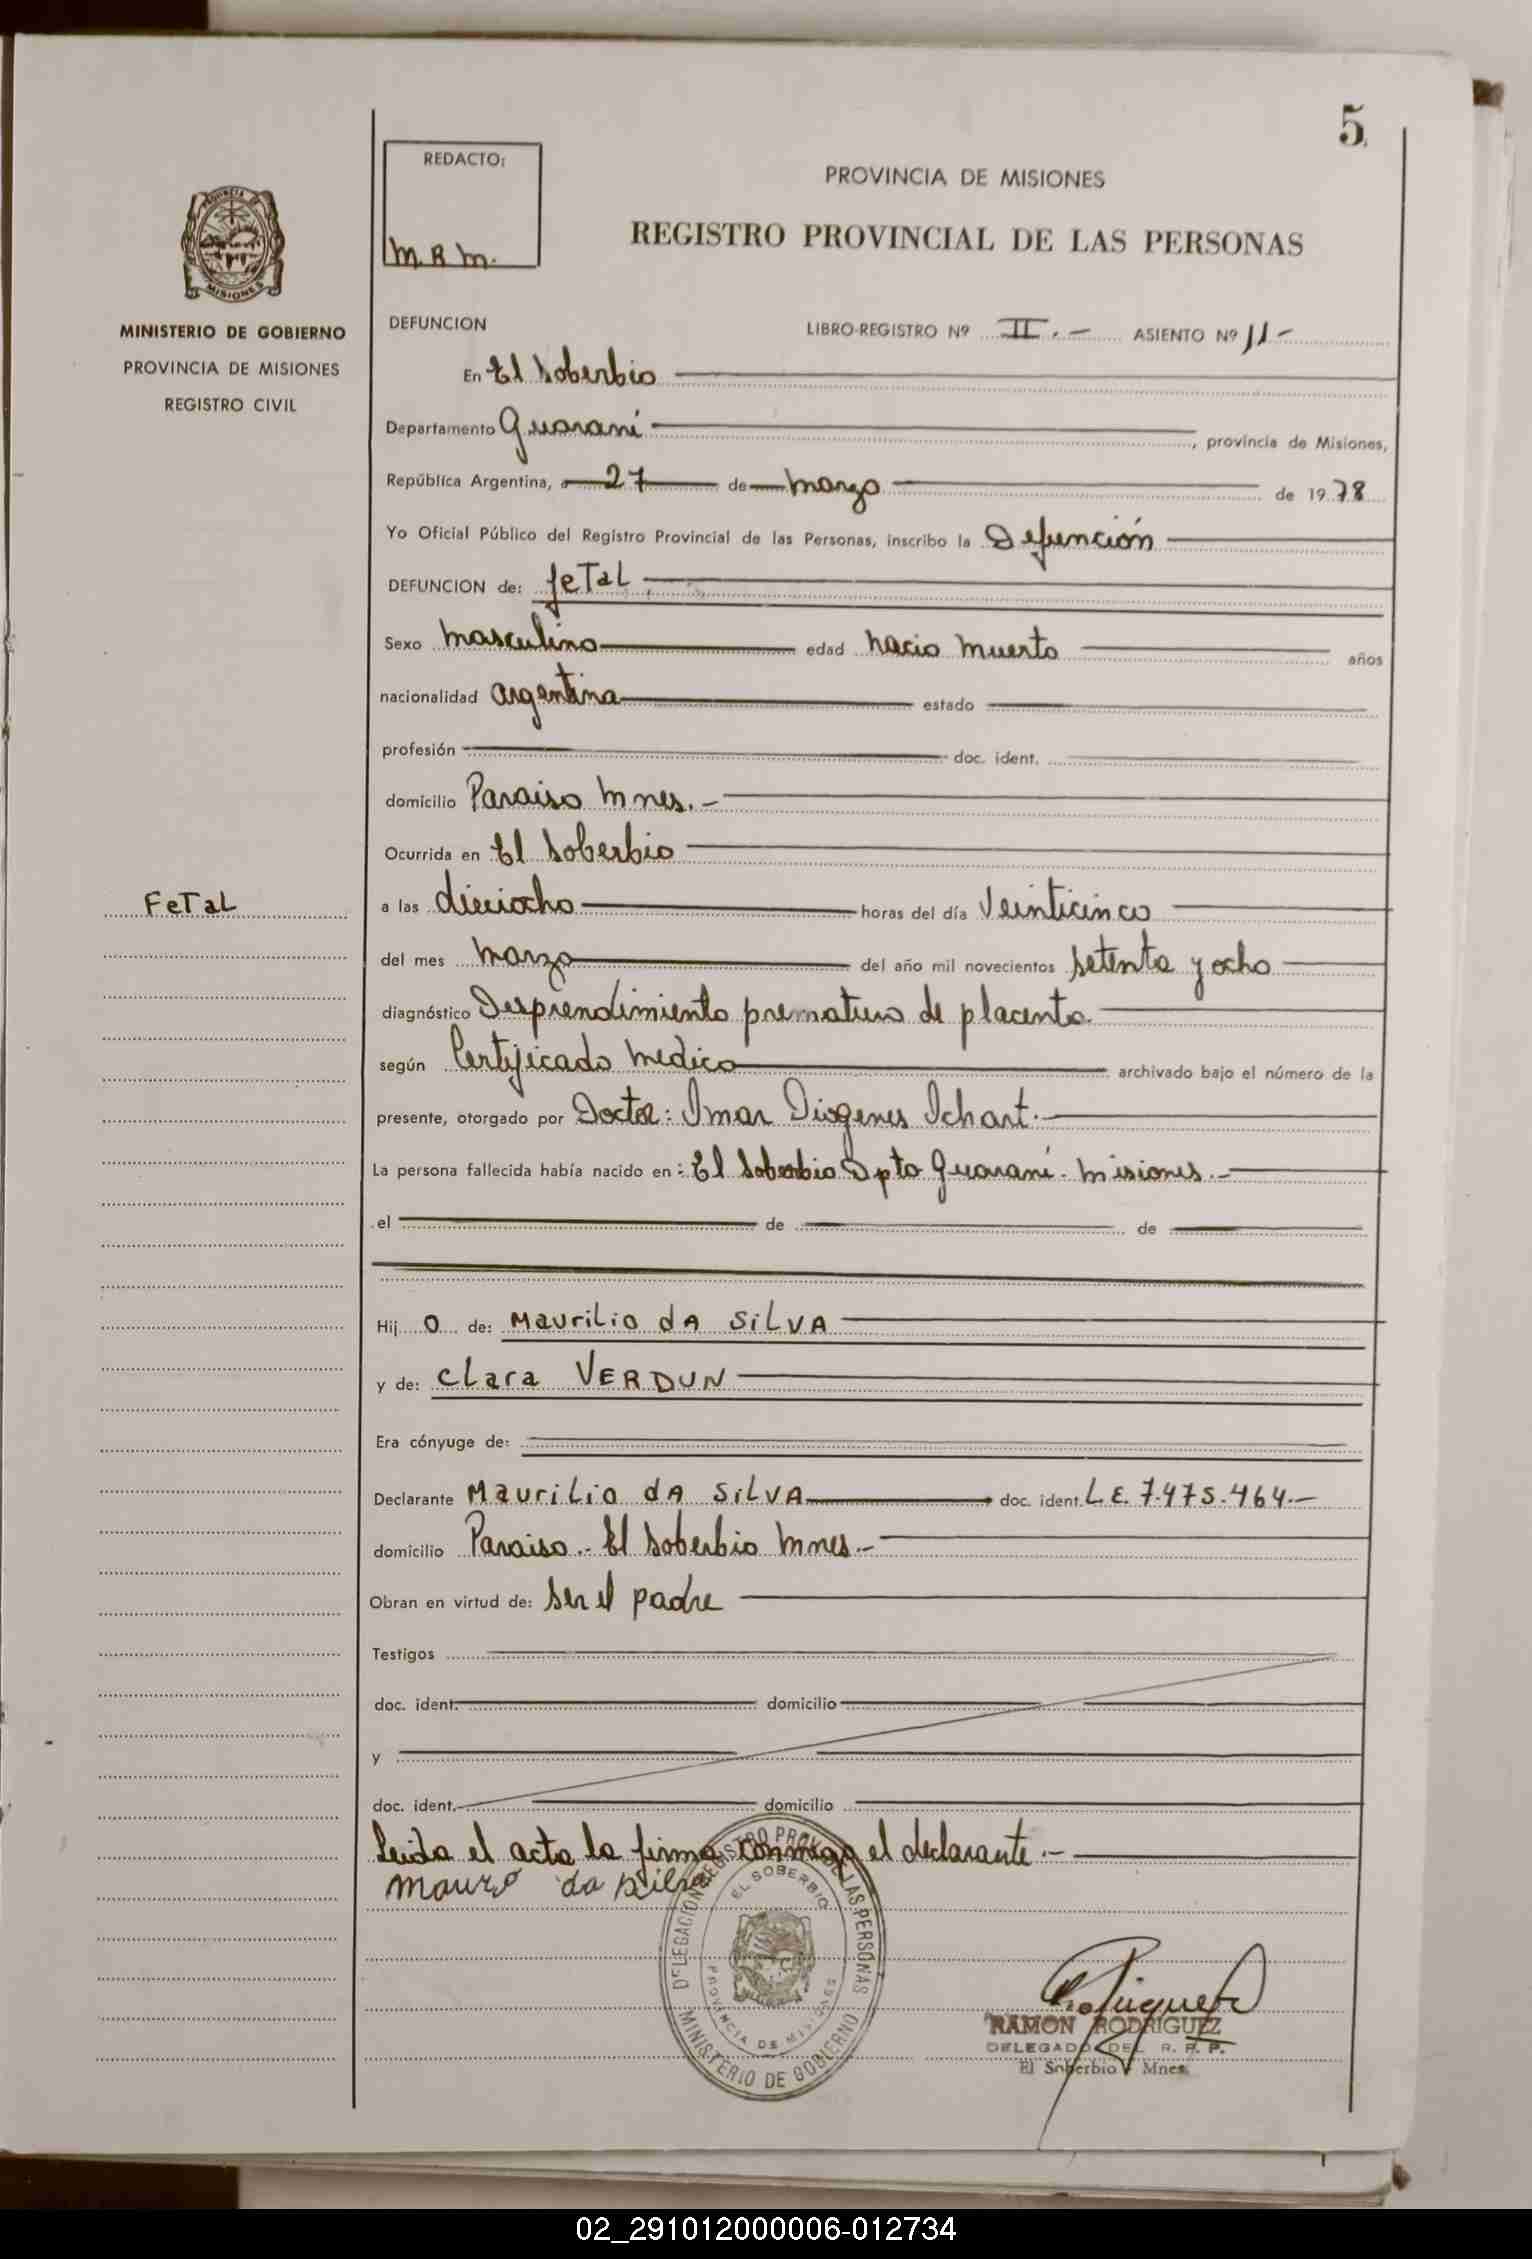 5
REDACTO:
M.R.M.
PROVINCIA DE MISIONES
REGISTRO PROVINCIAL DE LAS PERSONAS
PROVINCIA DE
MISIONES
MINISTERIO DE GOBIERNO
PROVINCIA DE MISIONES
REGISTRO CIVIL
DEFUNCION LIBRO-REGISTRO Nº II.- ASIENTO Nº 11-
En El Soberbio
Departamento Guarani, provincia de Misiones,
República Argentina, a 27 de marzo de 1978
Yo Oficial Público del Registro Provincial de las Personas, inscribo la Defunción
DEFUNCION de: feTaL
Sexo masculino edad nacio muerto años
nacionalidad argentina estado
profesión doc. ident.
domicilio Paraiso Mnes.-
Ocurrida en El Soberbio
FeTaL
a las dieciocho horas del día Veinticinco
del mes marzo del año mil novecientos setenta y ocho
diagnóstico Desprendimiento prematuro de placenta.
según Certificado medico archivado bajo el número de la
presente, otorgado por Doctor: Omar Diogenes Ichart.
La persona fallecida había nacido en: El Soberbio Dpto Guarani. Misiones.-
el de de
Hij o de: Maurilio dA SiLVA
y de: Clara VERDUN
Era cónyuge de:
Declarante Maurilio dA SiLVA doc. ident. L.E. 7.475.464.-
domicilio Paraiso.- El Soberbio Mnes.-
Obran en virtud de: ser el padre
Testigos
doc. ident. domicilio
y
doc. ident. domicilio
Leida el acta la firma conmigo el declarante.-
mauro da silva
DELEGACION REGISTRO PROV. DE LAS PERSONAS
EL SOBERBIO
PROVINCIA DE MISIONES
MINISTERIO DE GOBIERNO
Rodriguez
RAMON RODRIGUEZ
DELEGADO DEL R. P. P.
El Soberbio - Mnes.
02_291012000006-012734